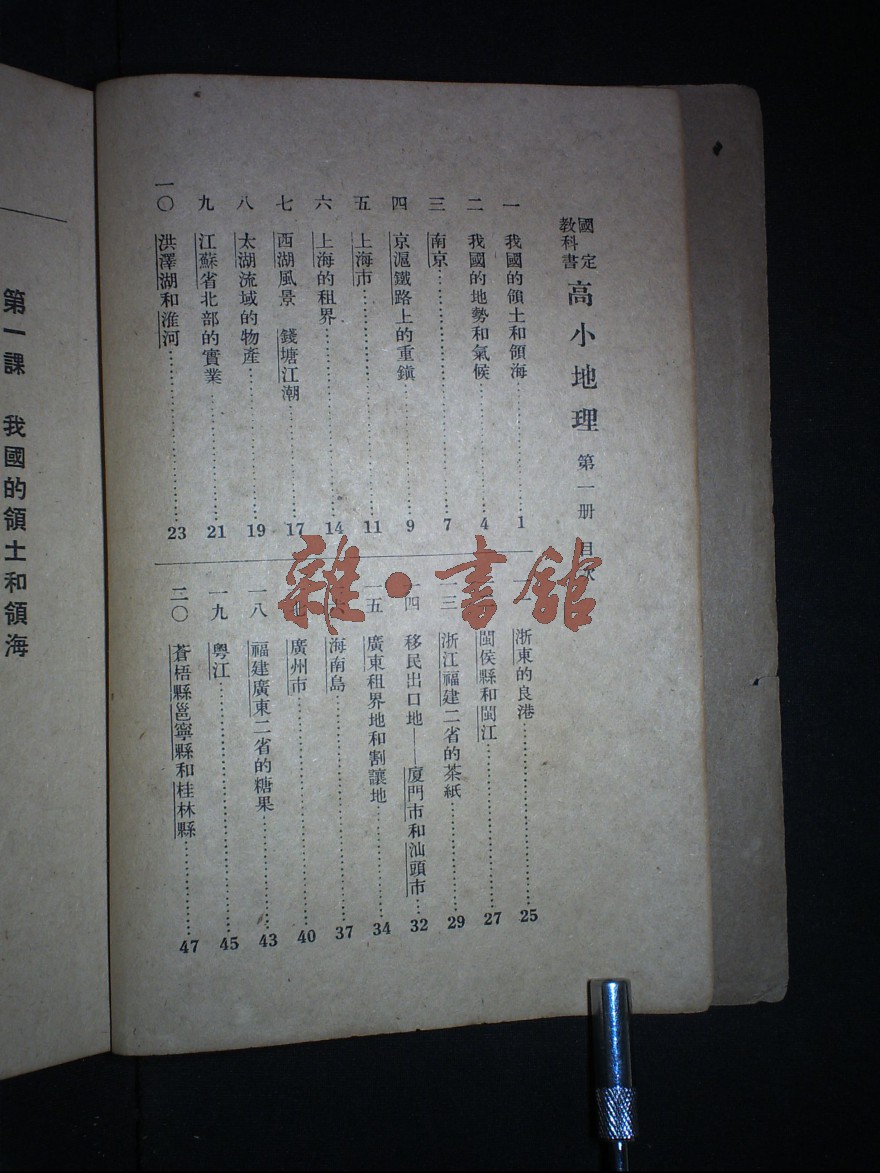 國定
教科書
高小地理 第一册 目次
一 我國的領土和領海 1
二 我國的地勢和氣候 4
三 南京 7
四 京滬鐵路上的重鎭 9
五 上海市 11
六 上海的租界 14
七 西湖風景 錢塘江潮 17
八 太湖流域的物產 19
九 江蘇省北部的實業 21
一〇 洪澤湖和淮河 23
浙東的良港 25
閩侯縣和閩江 27
一三 浙江福建二省的茶紙 29
一四 移民出口地——廈門市和汕頭市 32
一五 廣東租界地和割讓地 34
海南島 37
廣州市 40
一八 福建廣東二省的糖果 43
一九 粵江 45
二〇 蒼梧縣邕寧縣和桂林縣 47
第一課 我國的領土和領海
雜·書館